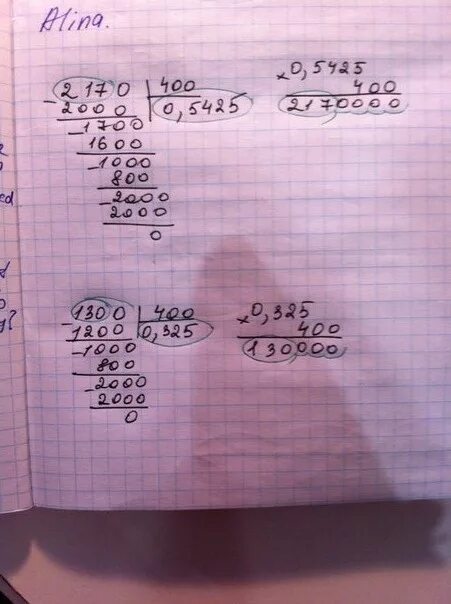 Alina.
2170 | 400
- 2000 | 0,5425
- 1700
1600
- 1000
800
- 2000
2000
0
× 0,5425
400
2170000
1300 | 400
- 1200 | 0,325
- 1000
800
- 2000
2000
0
× 0,325
400
130000
ed
y?